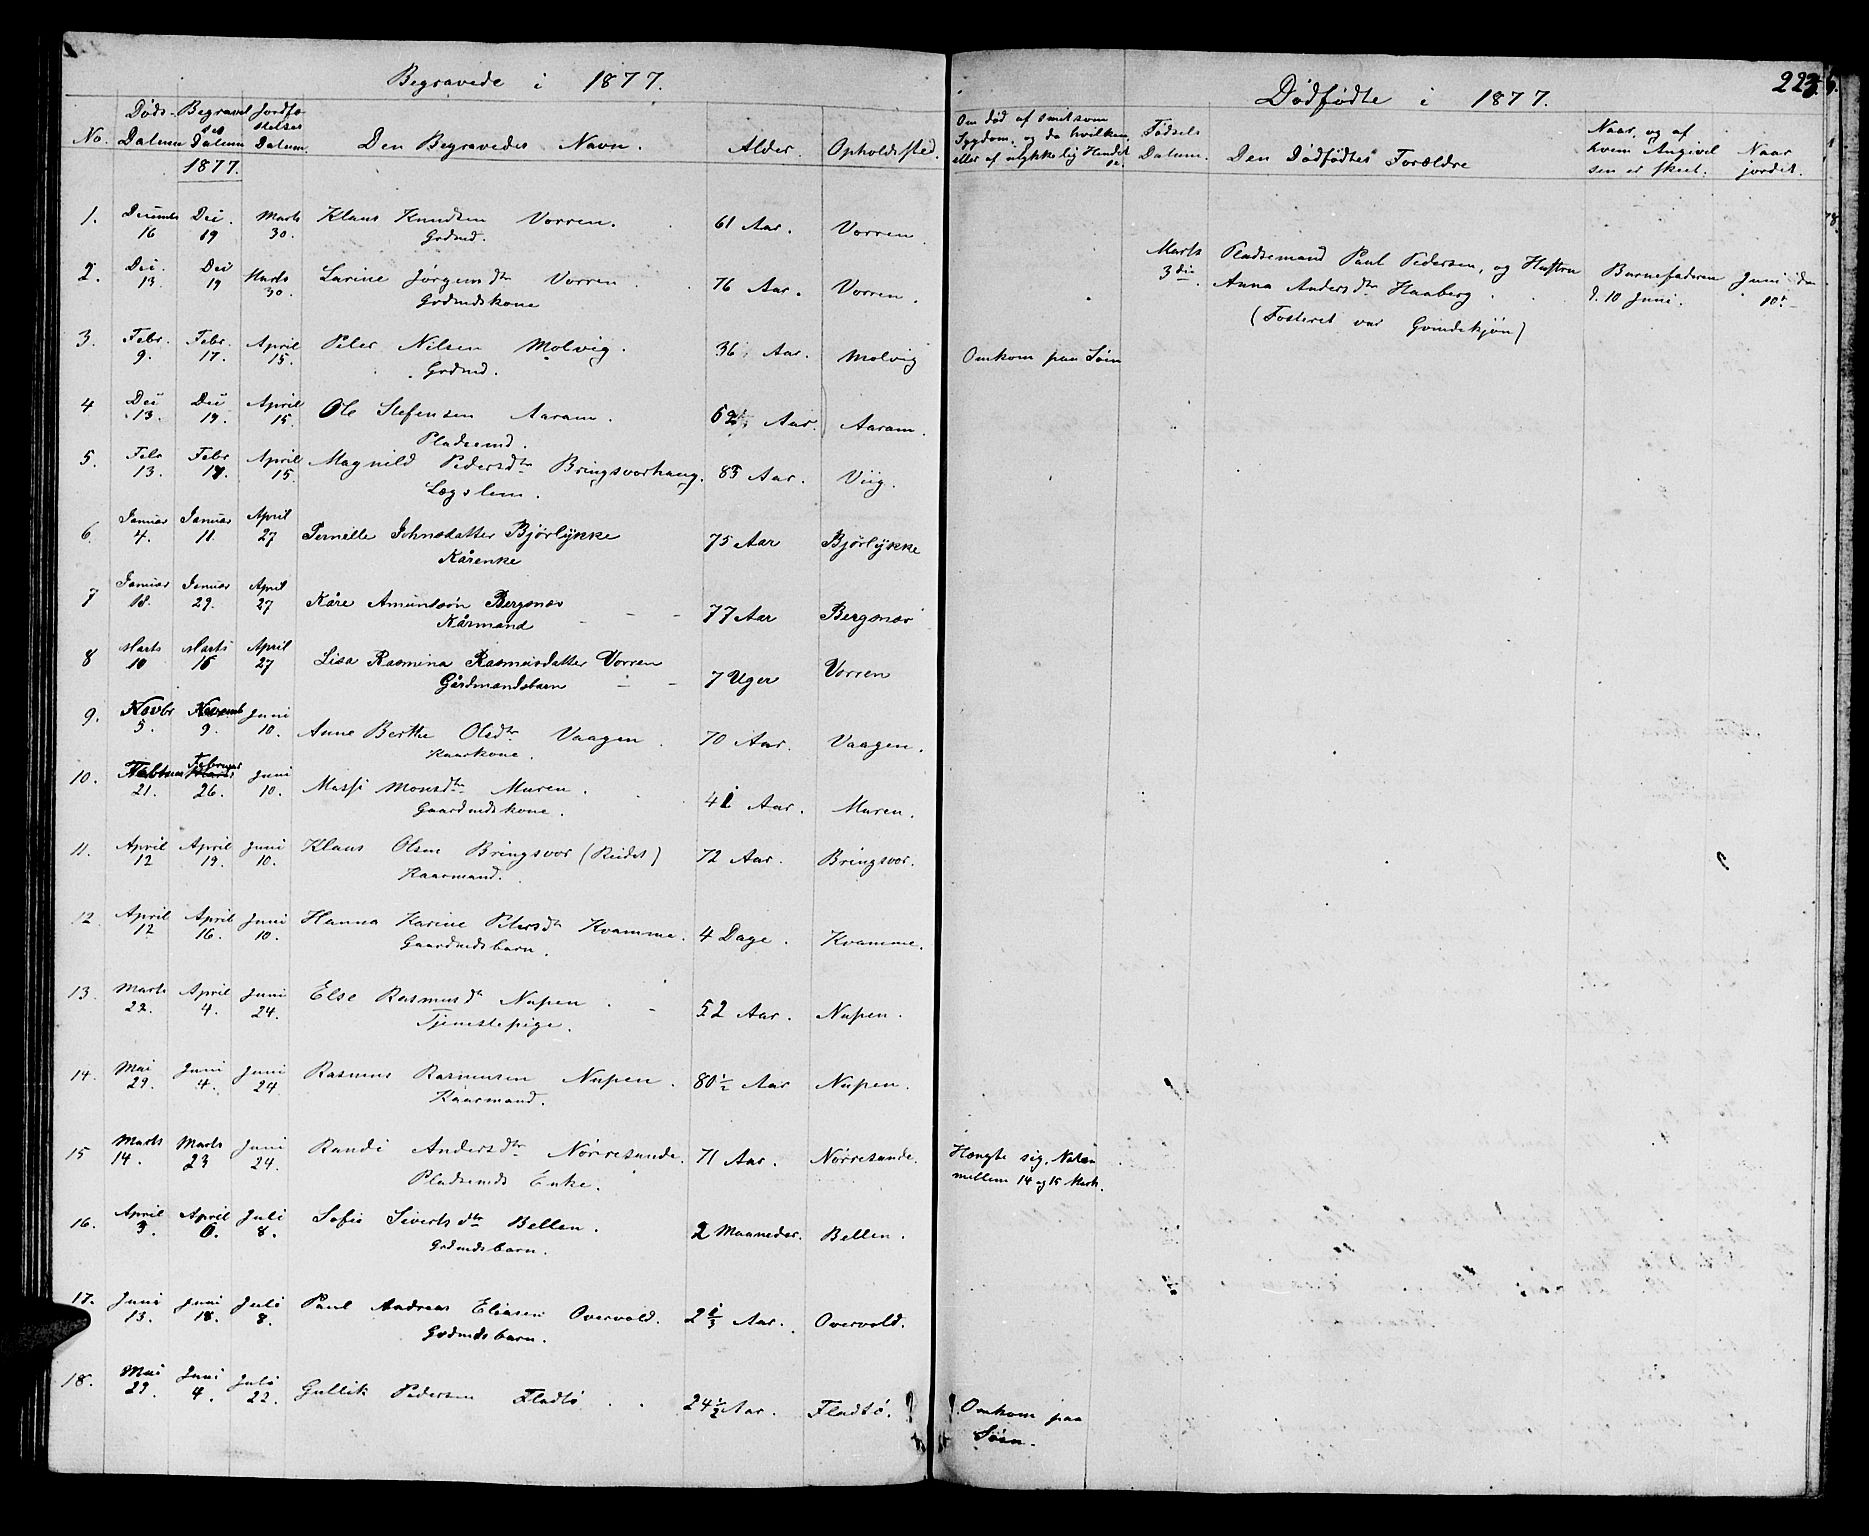 Begravede i 1877.
No. Døds-Datum Begravelses Datum Jordfæstelses Datum. Den Begravedes Navn. Alder. Opholdssted. Om død af smitsom Sygdom, og da hvilken, eller af ulykkelig Hændelse
1877.
1. December 16 Dec. 19 Marts 30. Klaus Knudsen Vorren. 61 Aar. Vorren.
Grdmd.
2. Dec. 13. Dec 19 Marts 30. Larine Jørgensdtr Vorren. 76 Aar. Vorren.
Grdmdskone
3. Febr. 9. Febr. 17. April 15. Peter Nilsen Molvig. 36 Aar. Molvig Omkom paa Søen
Grdmd.
4 Dec 13. Dec 19. April 15. Ole Stefensen Aaram. Aar. Aaram.
Pladsemd.
5. Febr 13. Febr April 15. Magnild Pedersdtr Bringsvorhaug. 83 Aar. Viig.
Lægslem.
6. Januar 4. Januar 11. April 27 Pernille Johnsdatter Bjørlykke 75 Aar Bjørlykke
Kårenke
7 Januar 18. Januar 29. April 27 Kåre Amundsøn Bergsnæv 77 Aar Bergsnæv
Kårmand
8 Marts 10 Marts 15 April 27 Lisa Rasmina Rasmusdatter Vorren 7 Uger Vorren
Gårdmandsbarn
9. Novbr 5. Novemb 9. Juni 10. Anne Berthe Olsdtr Vaagen. 70 Aar. Vaagen.
Kaarkone.
10. Februar 21. Februar 26. Juni 10. Massi Monsdtr Muren. 41 Aar. Muren.
Gaardmdskone.
11. April 12 April 19. Juni 10. Klaus Olsen Bringsvor (Reidet) 72 Aar. Bringsvor.
Kaarmand.
12. April 12 April 16. Juni 10. Hanna Karine Petersdtr Kvamme. 4 Dage. Kvamme.
Gaardmdsbarn.
13. Marts 22. April 4. Juni 24. Else Rasmusdtr Nupen. 52 Aar. Nupen.
Tjenestepige.
14. Mai 29. Juni 4. Juni 24 Rasmus Rasmussen Nupen. 80 ½ Aar Nupen.
Kaarmand.
15 Marts 14. Marts 23 Juni 24. Randi Andersdtr Nørresande. 71 Aar. Nørresande. Hængte sig, Natten mellem 14 og 15 Marts.
Pladsemds Enke.
16. April 3. April 6. Juli 8. Sofie Sivertsdtr Bellen. 2 Maaneder. Bellen.
Grdmdsbarn.
17. Juni 13. Juni 18. Juli 8. Paul Andreas Eliasen Overvold. 2 1/3 Aar. Overvold.
Grdmdsbarn.
18. Mai 29. Juni 4. Juli 22. Gullik Pedersen Fladtø. 24 ½ Aar. Fladtø. Omkom paa Søen.
Dødfødte i 1877.
223
Fødsels Datum. Den Dødfødtes Forældre Naar og af hvem Angivelsen er skeet. Naar jordet.
Marts 3die. Pladsemand Paul Pedersen, og Hustru Anna Andersdtr Haaberg. Barnefaderen d. 10 Juni. Juni den 10de
(Fosteret var Qvindekjøn)